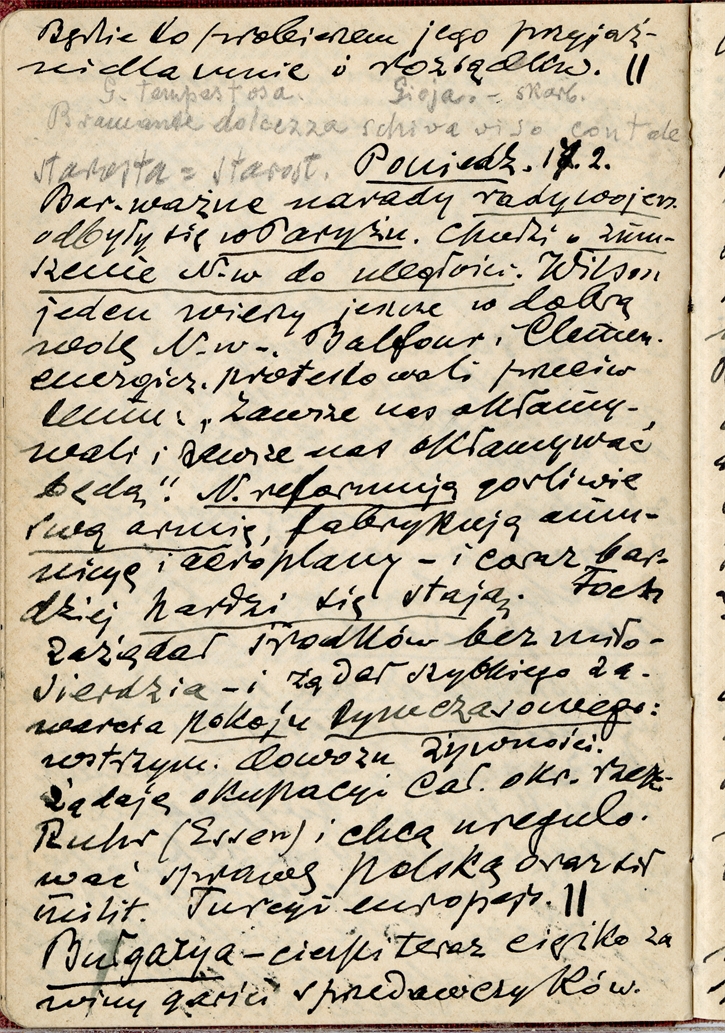 Będzie to probierzem jego przyjaź-
ni dla mnie i rozsądku. ||
G. tempestosa. Gioja. - skarb.
Bramante dolcezza schiva viso contale
starosta = starost. Poniedz. 17.2.
Bar. ważne narady rady wojen.
odbyły się w Paryżu. Chodzi o zmu-
szenie N-w do uległości. Wilson
jeden wierzy jeszcze w dobrą
wolę N-w-. Balfour i Clemen.
energicz. protestowali przeciw
temu: „Zawsze nas okłamy-
wali i zawsze nas okłamywać
będą"! N. reformują gorliwie
swą armię, fabrykują amu-
nicyę i aeroplany - i coraz bar-
dziej hardzi się stają. Foch
zażądał środków bez miło-
sierdzia - i żądał szybkiego za-
warcia pokoju tymczasowego:
wstrzym. dowozu żywności.
Żądają okupacyi cał. okr. rzek.
Ruhr (Essen) i chcą uregulo-
wać sprawę polską oraz sił
milit. Turcyi europejs. ||
Bułgarya - cierpi teraz ciężko za
winy garści sprzedawczyków.